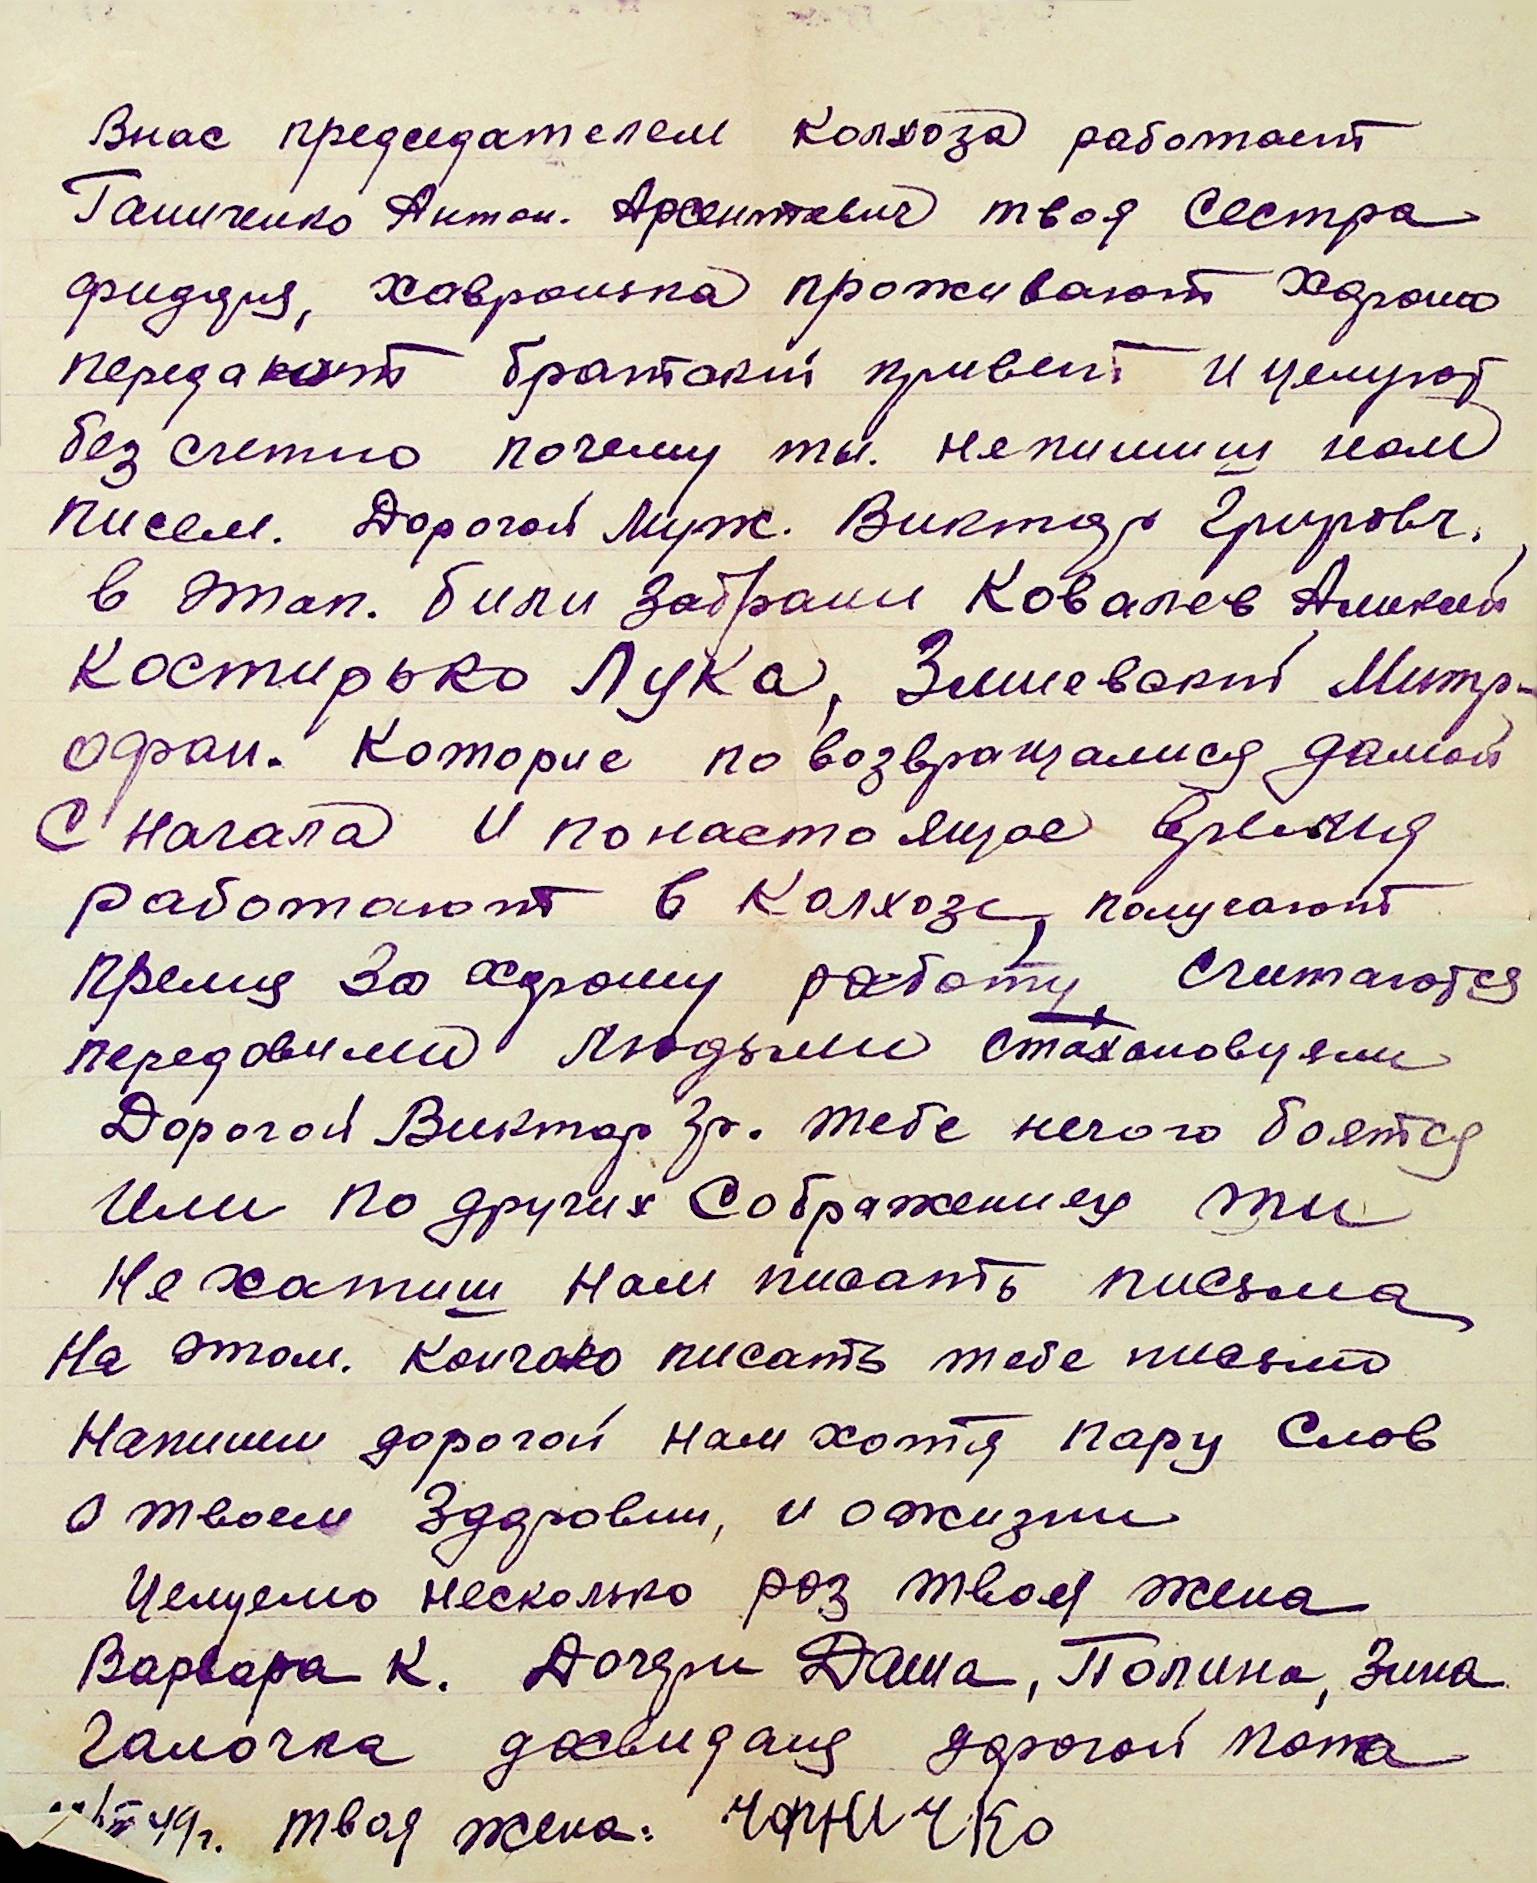 Внас председателем колхоза работает
Ганиченко Антон. Арсентевич твоя сестра
фиддя, хавронька проживают хорошо
передают братский привет и целуют
без счетно почему ты. не пишиш нам
писем. Дорогой Муж. Виктор
в этап. били забрани Ковалев
Костирько Лука, Змиевский Митр-
офан. Которие по возвращалися дамой
С начала и по настоящое время
работают в Колхозе, получают
премия За хорошу работу, считаются
передовими людьми стахановцями
Дорогой Виктор Гр. тебе нечого боятся
или по других Сображениях ти
не хатиш нам писать письма
На этом. Кончаю писать тебе письмо
Напиши дорогой нам хотя пару Слов
О твоем Здоровии, и о жизни
Целуемо несколько роз твоя жена
Варвара К. Дочери Даша, Полина, Зина
Галочка досвидания дорогой папа
49г. твоя жена. Чорничко